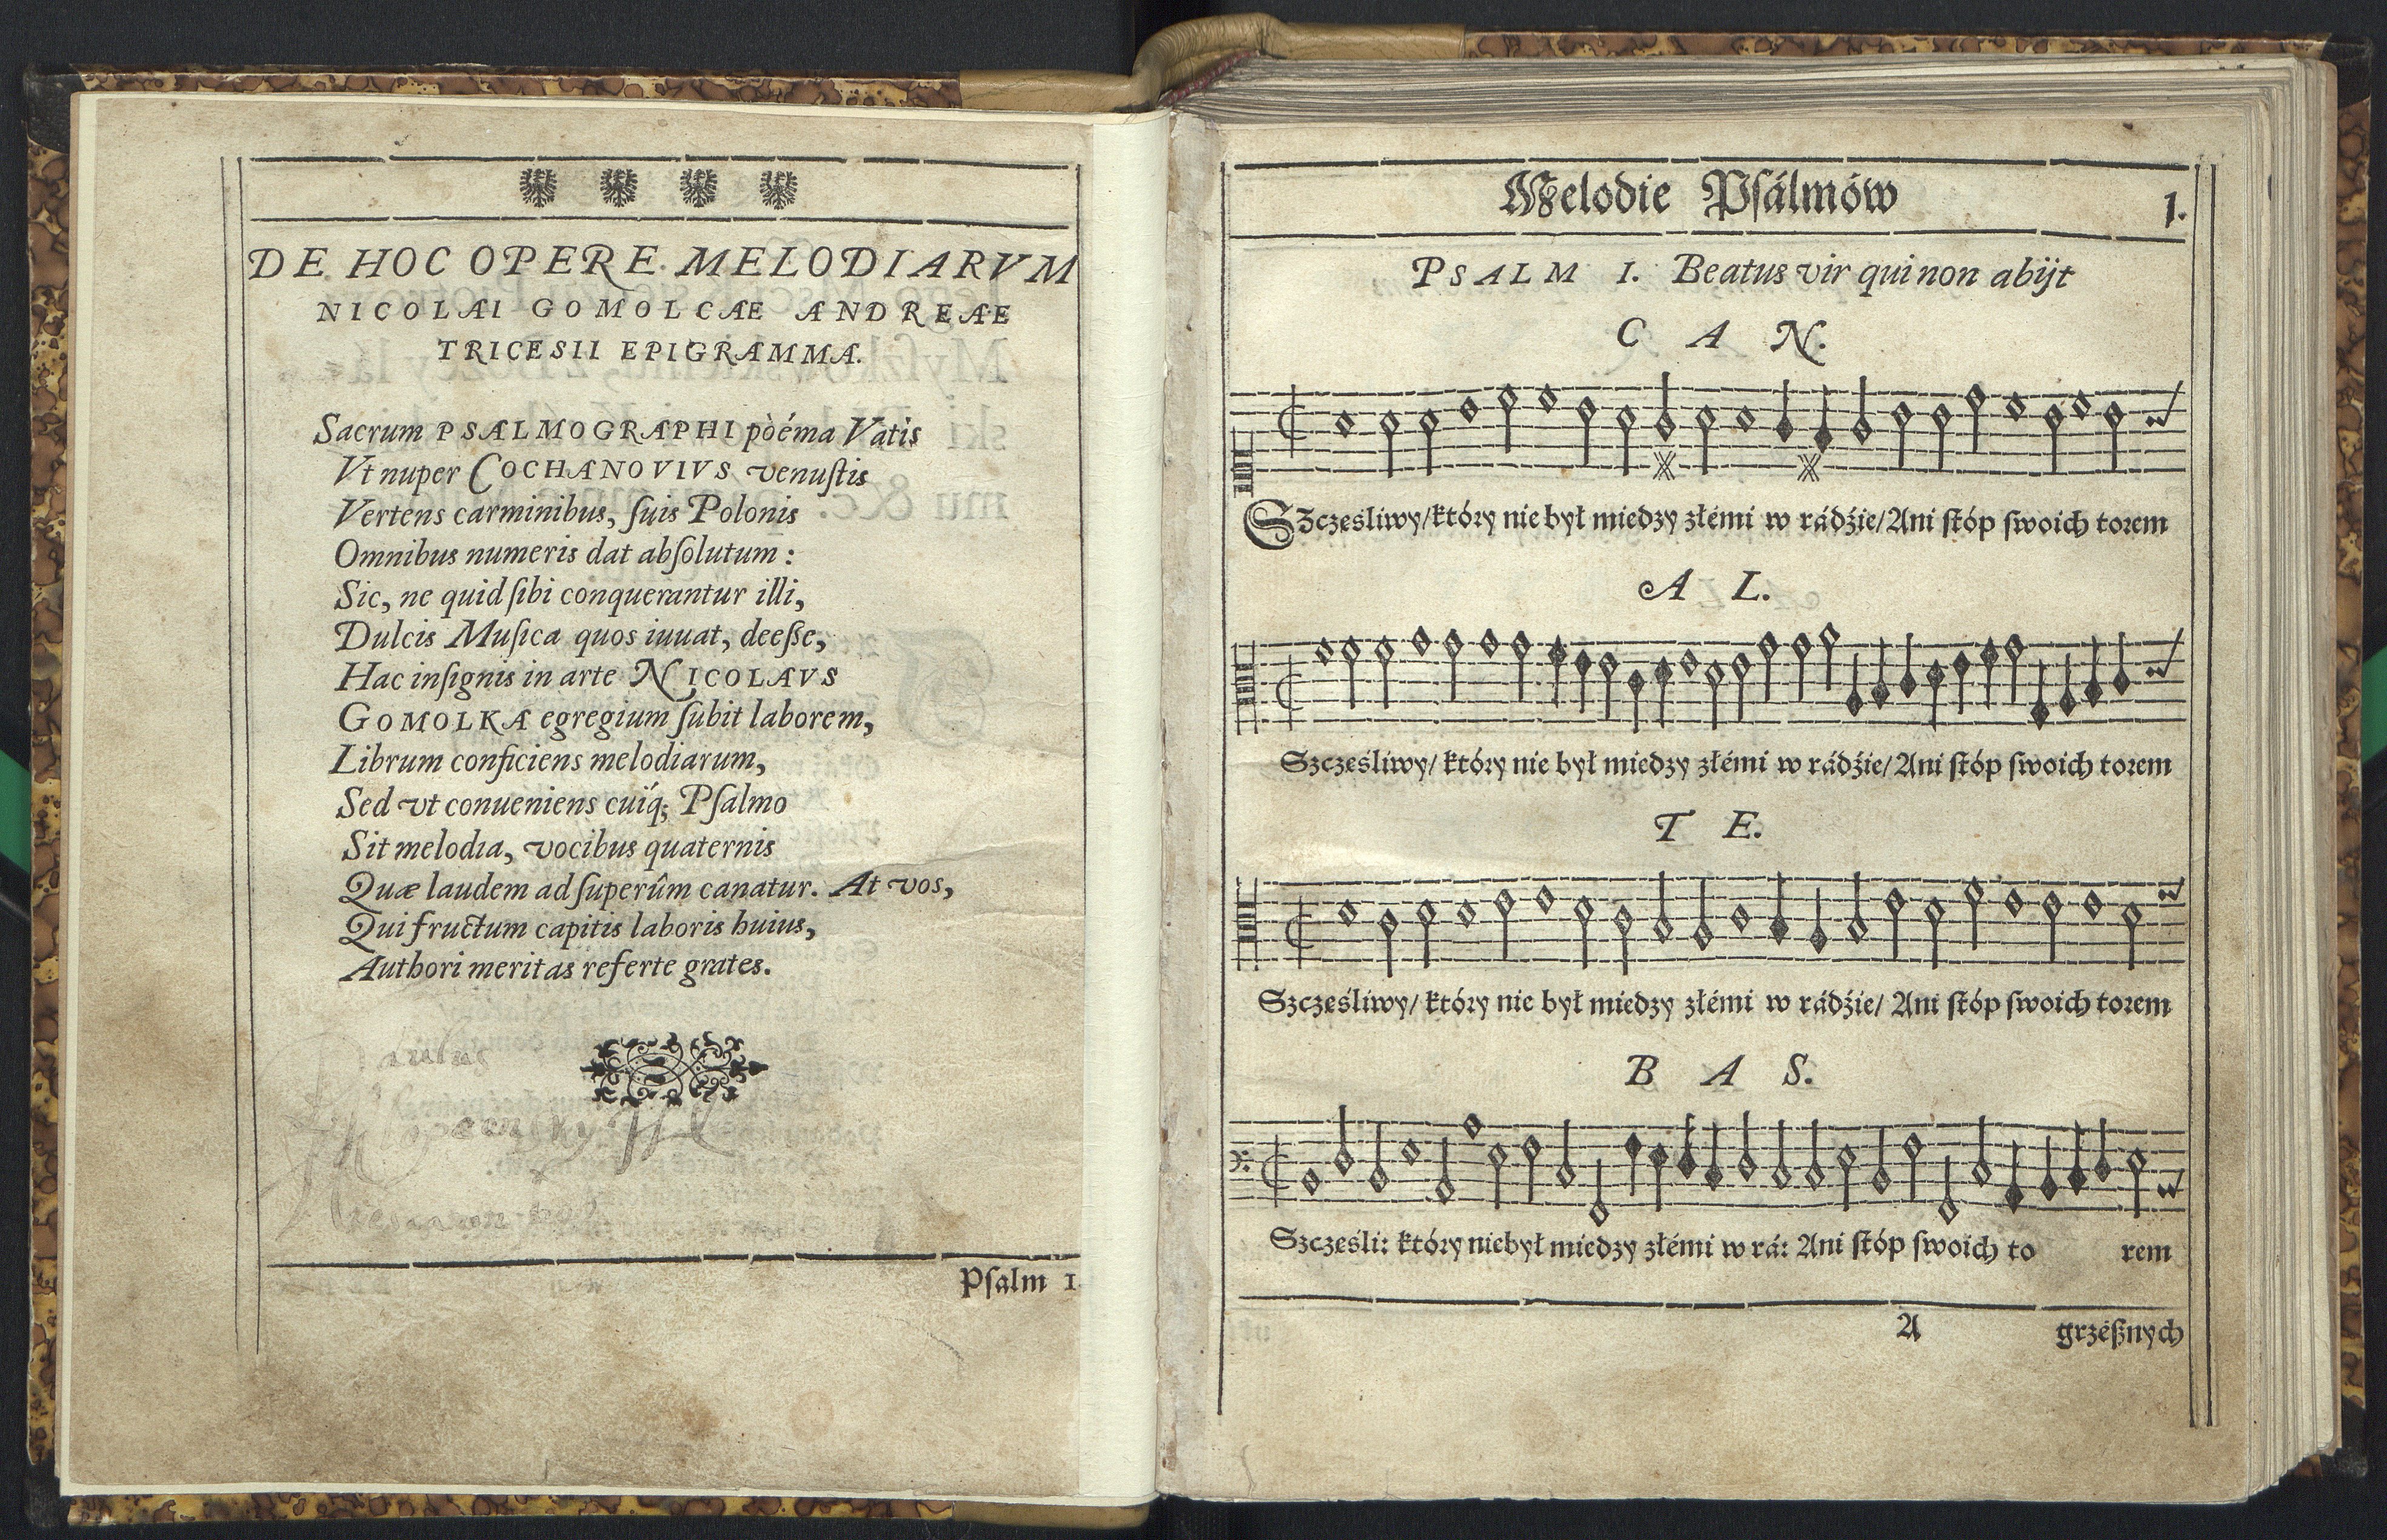 DE HOC OPERE MELODIARVM
NICOLAI GOMOLCÆ ANDREÆ
TRICESII EPIGRAMMA.
Sacrum PSALMOGRAPHI pòéma Vatis
Vt nuper COCHANOVIVS venuſtis
Vertens carminibus, ſuis Polonis
Omnibus numeris dat abſolutum:
Sic, ne quid ſibi conquerantur illi,
Dulcis Muſica quos iuuat, deeſſe,
Hac inſignis in arte NICOLAVS
GOMOLKA egregium ſubit laborem,
Librum conficiens melodiarum,
Sed vt conueniens cuiq́; Pſalmo
Sit melodia, vocibus quaternis
Quæ laudem ad ſuperûm canatur. At vos,
Qui fructum capitis laboris huius,
Authori meritas referte grates.
Pſalm 1
Melodie Pſálmów 1.
PSALM I. Beatus vir qui non abijt
CAN.
Szczęśliwy/ który nie był miedzy złémi w rádźie/ Ani ſtóp ſwoich torem
AL.
Szczęśliwy/ który nie był miedzy złémi w rádźie/ Ani ſtóp ſwoich torem
TE.
Szczęśliwy/ który nie był miedzy złémi w rádźie/ Ani ſtóp ſwoich torem
BAS.
Szczęśli: który niebył miedzy złémi w rá: Ani ſtóp ſwoich to rem
A grzéßnych